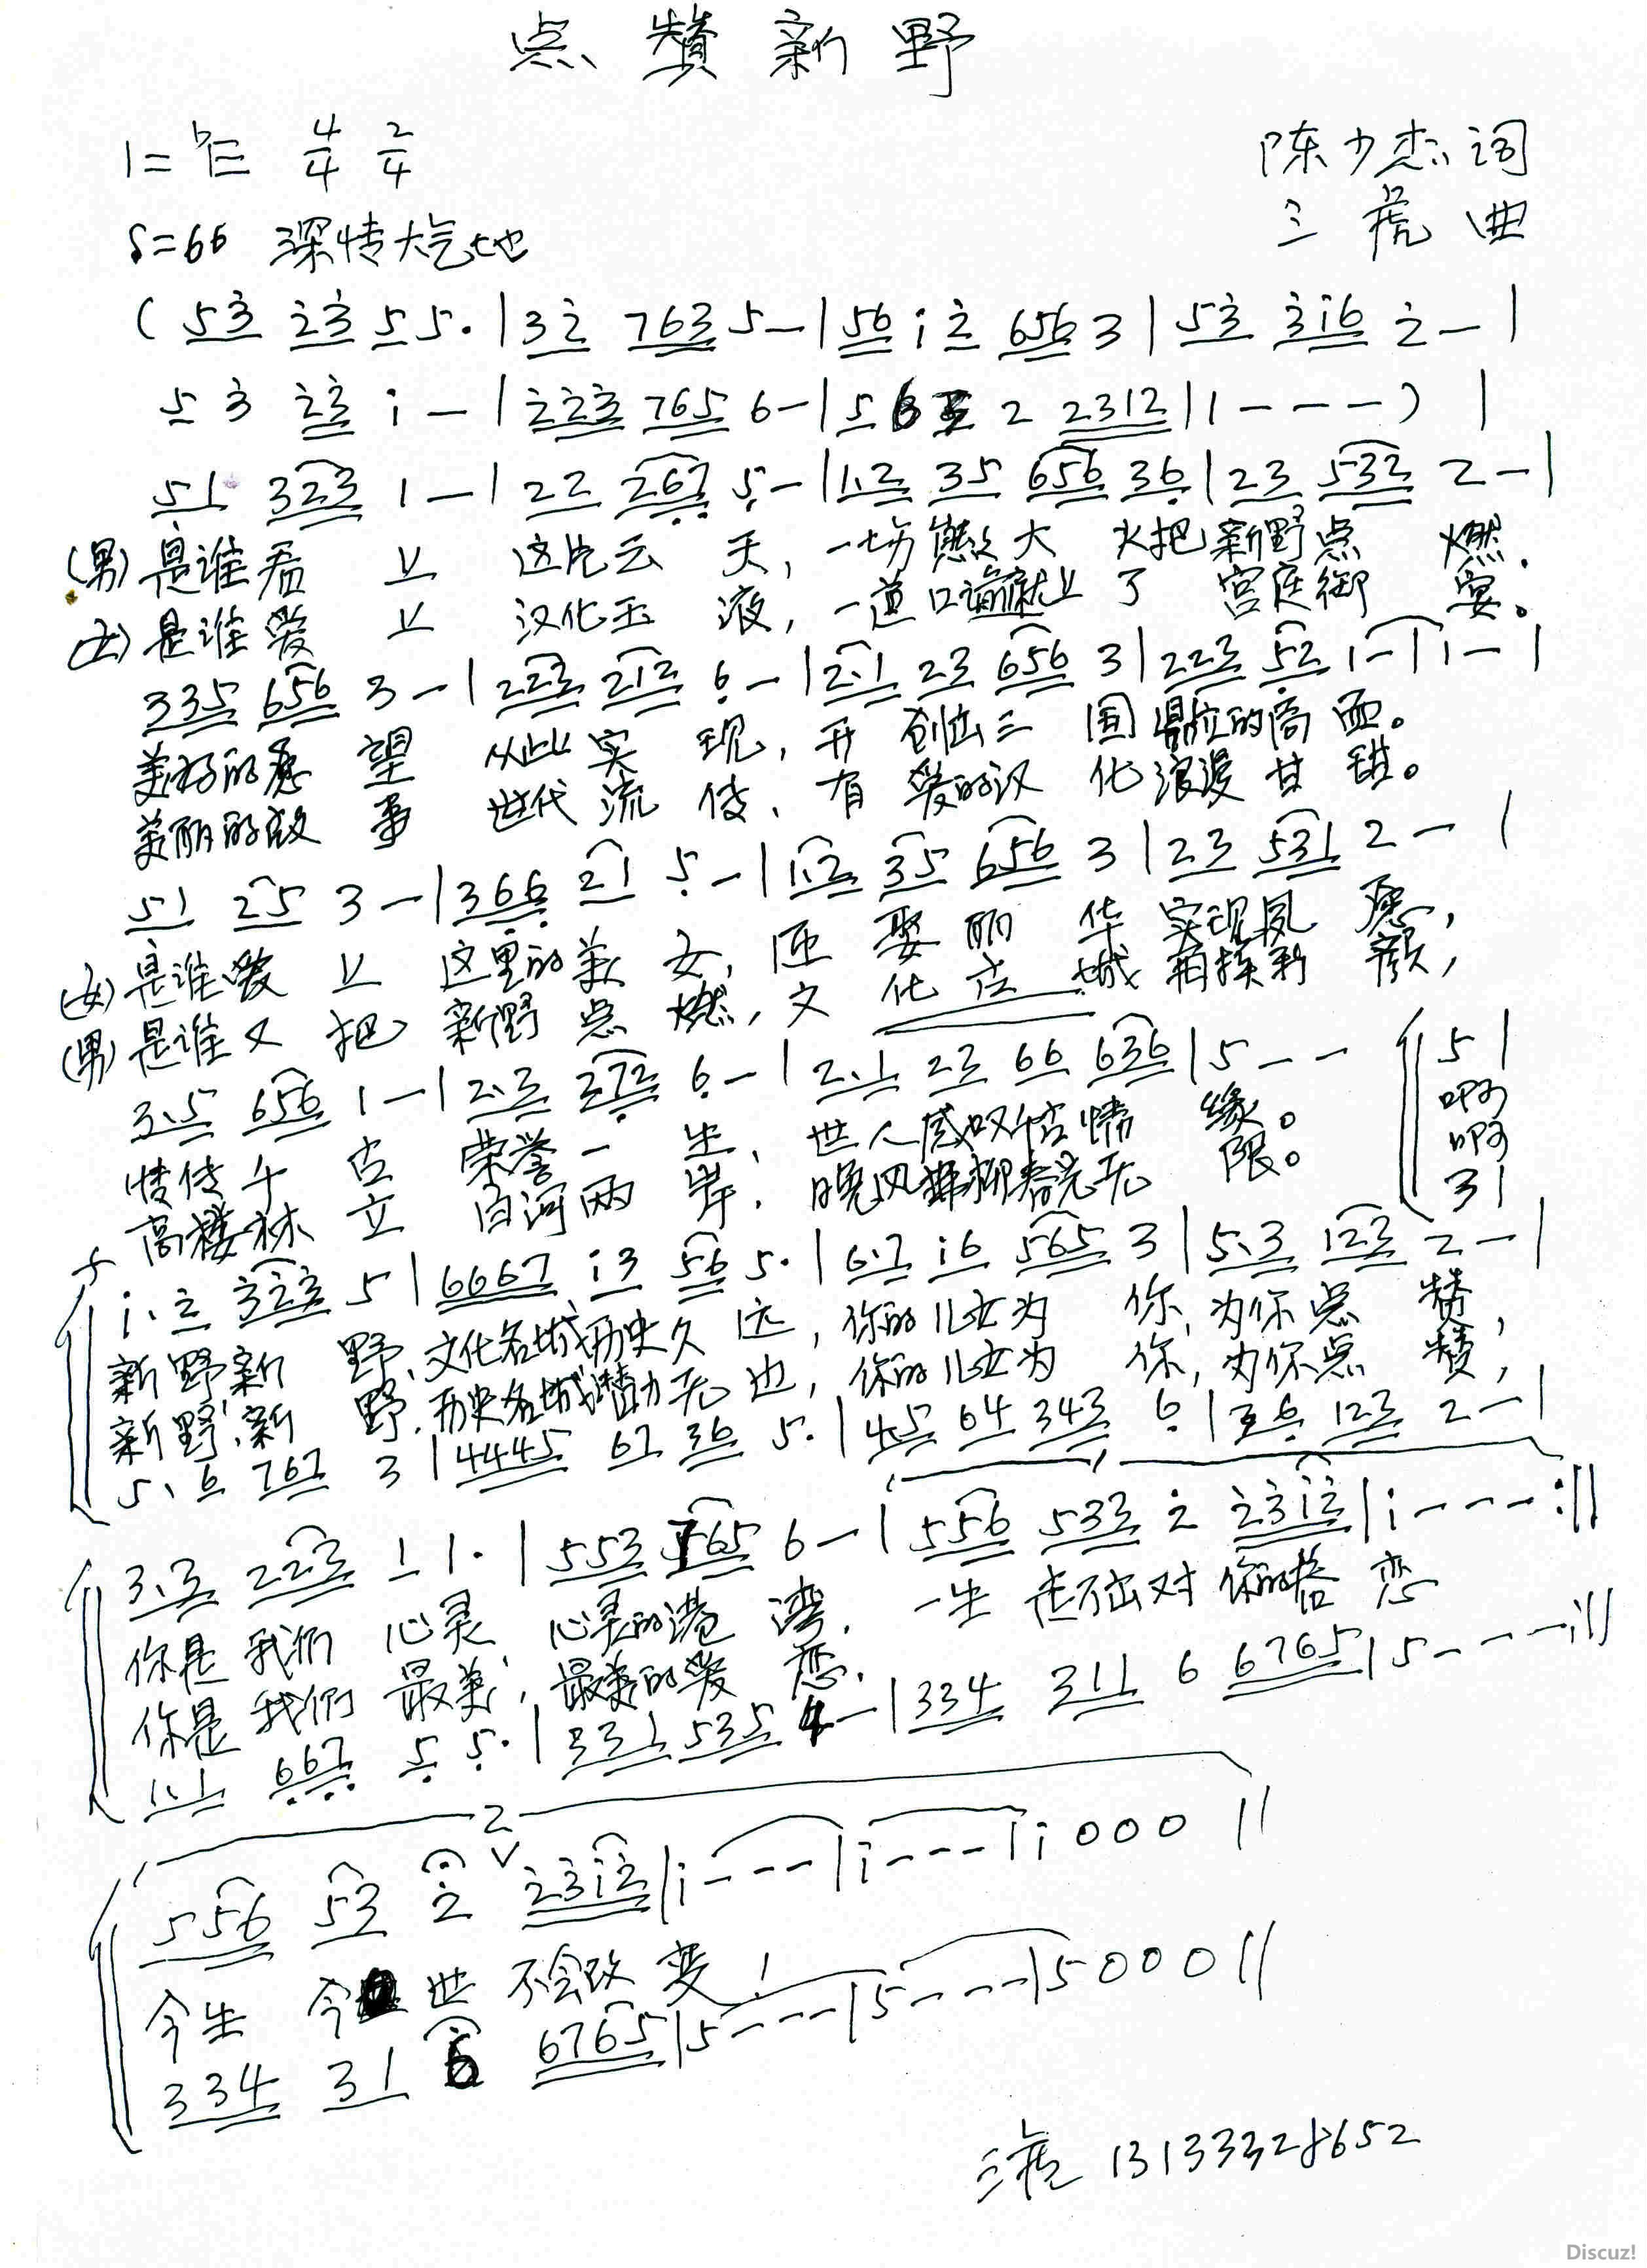 点赞新野
1=♭E 4/4 2/4
陈少杰词
♩=66 深情大气地
三虎曲
( 53̇ 2̇3̇ 5 5· | 32̇ 763 5 — | 56 1̇ 2̇ 656 3 | 53̇ 3̇1̇6 2̇ — |
5 3̇ 2̇3̇ 1̇ — | 2̇2̇3̇ 765 6 — | 5 6 2 2312 | 1 — — — ) |
51 323 1 — | 22 267 5 — | 1·2 35 656 36 | 23 532 2 — |
(男) 是谁看上这片云天,一场大火把新野点燃.
(女) 是谁爱上汉化玉液,一道口谕就上了宫庭御宴。
335 656 3 — | 223 212 6 — | 2·1 23 656 3 | 223 52 1 — | 1 — |
美好的愿望从此实现,开创出三国鼎立的局面。
美丽的故事世代流传,有爱的汉化浪漫甘甜。
51 25 3 — | 366 21 5 — | 1·2 35 656 3 | 23 531 2 — |
(女) 是谁爱上这里的美女,迎娶丽华实现夙愿,
(男) 是谁又把新野点燃,文化古城新颜,
3·5 656 1 — | 2·3 272 6 — | 2·1 23 66 636 | 5 — — 5 |
情传千古荣誉一生,世人感叹情缘。啊
高楼林立白河两岸.晚风舞柳春光无限。啊
3 |
1̇·2̇ 3̇2̇3̇ 5 | 6667 1̇3 56 5· | 6·7 1̇6 565 3 | 5·3 123 2 — |
新野新野,文化名城历史久远,你的儿女为你,为你点赞,
新野新野.历史名城潜力无边,你的儿女为你,为你点赞,
5·6 767 3 | 4445 67 36 5· | 4·5 64 343 6 | 36 123 2 — |
3·3 223 1 1· | 553 565 6 — | 556 533 2̇ 2̇3̇1̇2̇ | 1̇ — — — :||
你是我们心灵,心灵的港湾.一生走不出对你的眷恋
你是我们最美,最美的爱恋.
1·1 667 5 5· | 331 535 4 — | 334 311 6 6765 | 5 — — — :||
2
556 53 2̇ ∨ 2̇3̇1̇2̇ | 1̇ — — — | 1̇ — — — | 1̇ 0 0 0 ||
今生今世不会改变!
334 31 6 6765 | 5 — — — | 5 — — — | 5 0 0 0 ||
三虎 13133328652
Discuz!